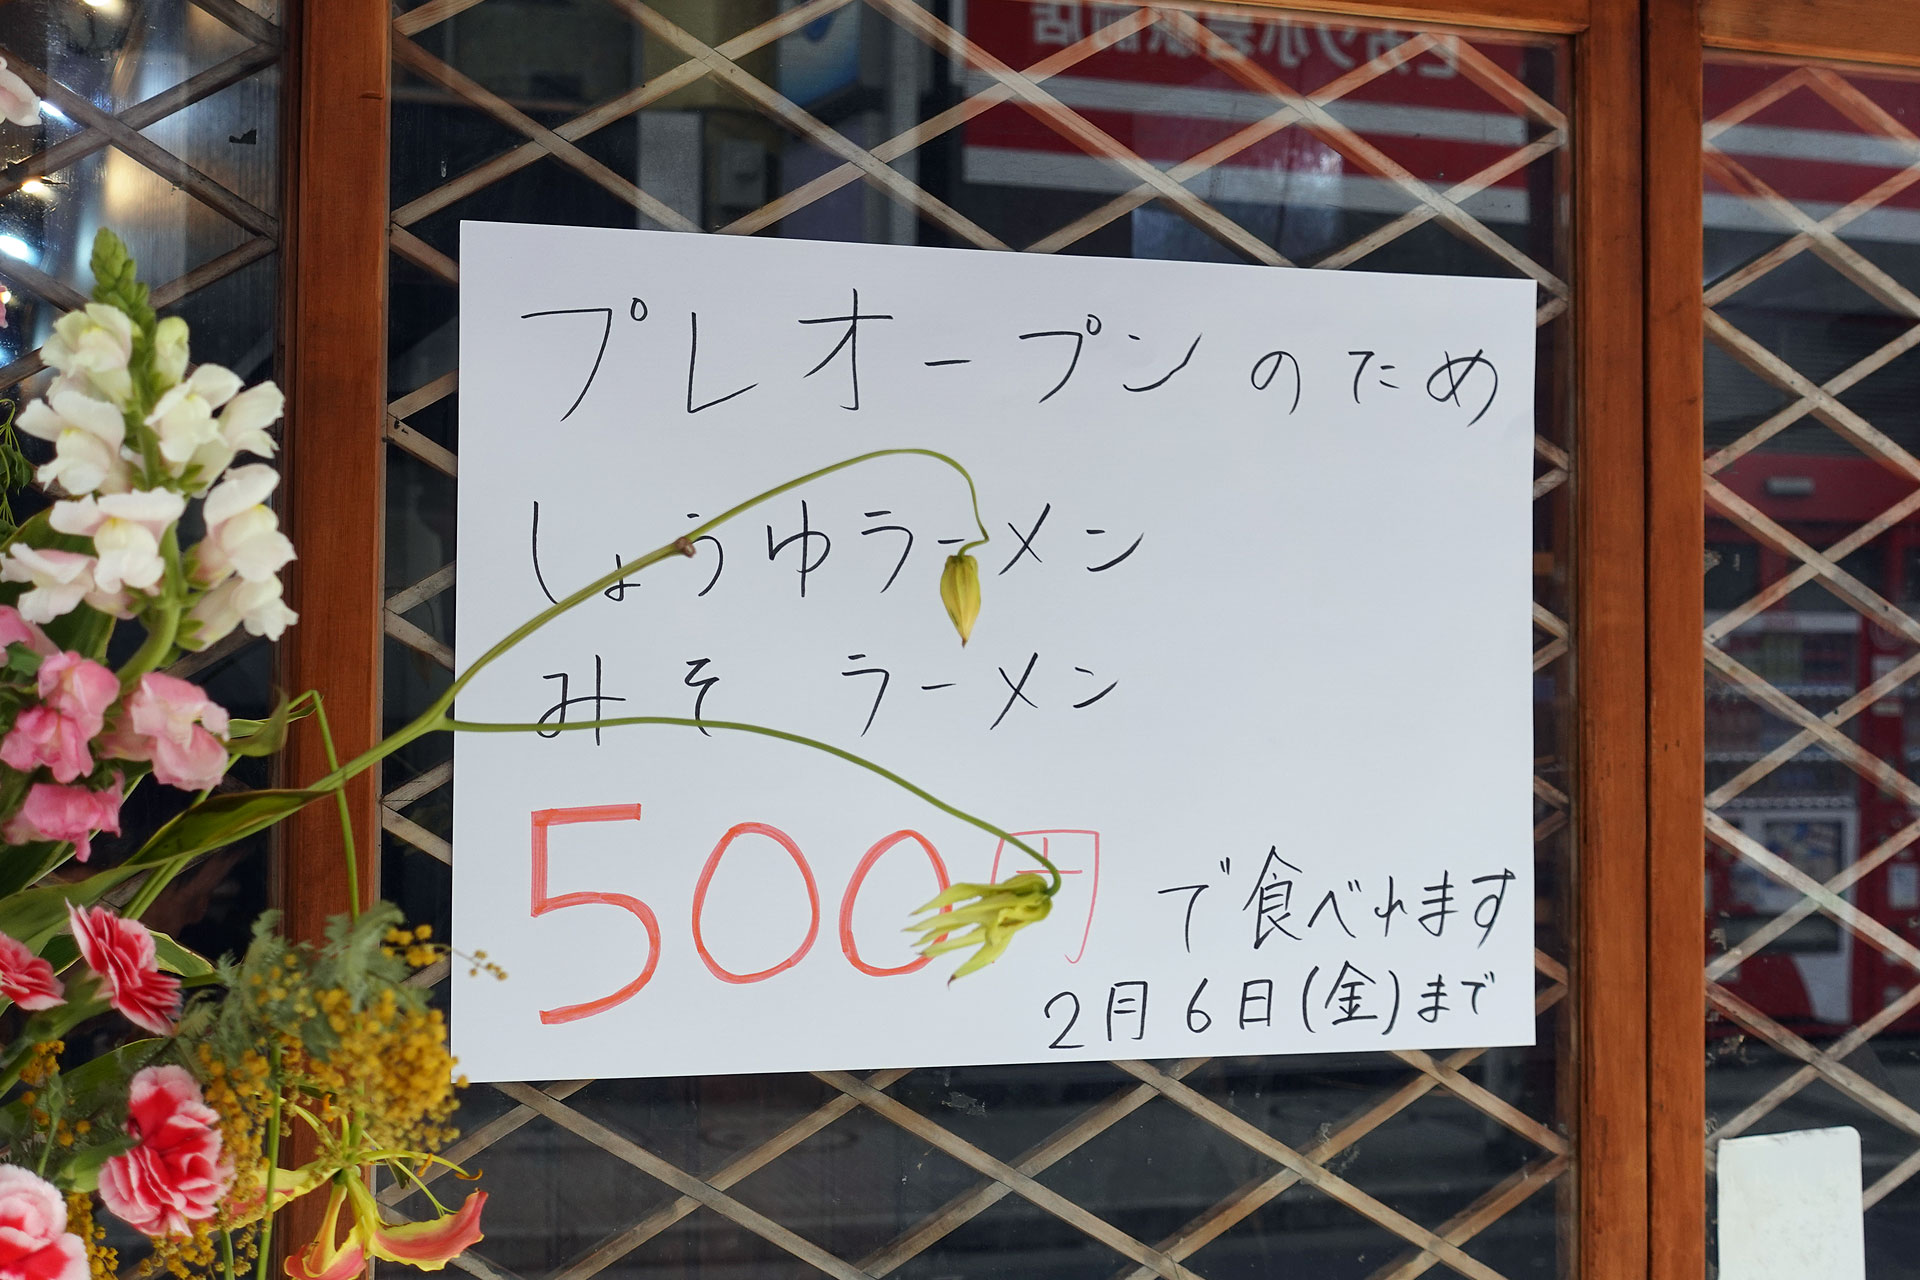 ピカソ小岩駅前店
プレオープンのため
しょうゆラーメン
みそ ラーメン
500円で食べれます
2月6日(金)まで